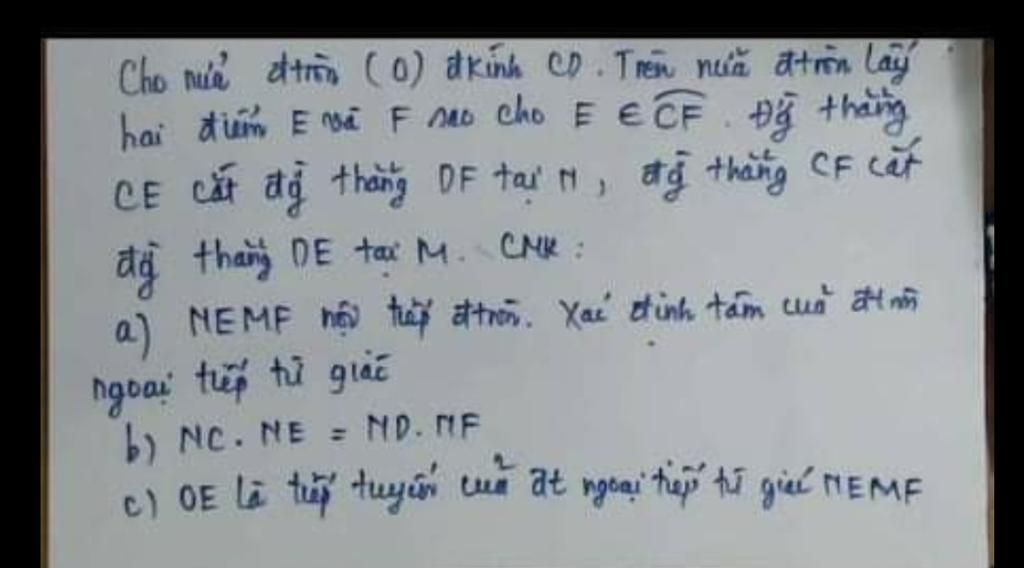 Cho nửa đtròn (O) đkính CD. Trên nửa đtròn lấy
hai điểm E và F sao cho E ∈ CF. Đg thẳng
CE cắt đg thẳng DF tại N, đg thẳng CF cắt
đg thẳng DE tại M. CMR:
a) NEMF nội tiếp đtròn. Xác định tâm của đtròn
ngoại tiếp tứ giác
b) NC.NE = ND.NF
c) OE là tiếp tuyến của đt ngoại tiếp tứ giác NEMF